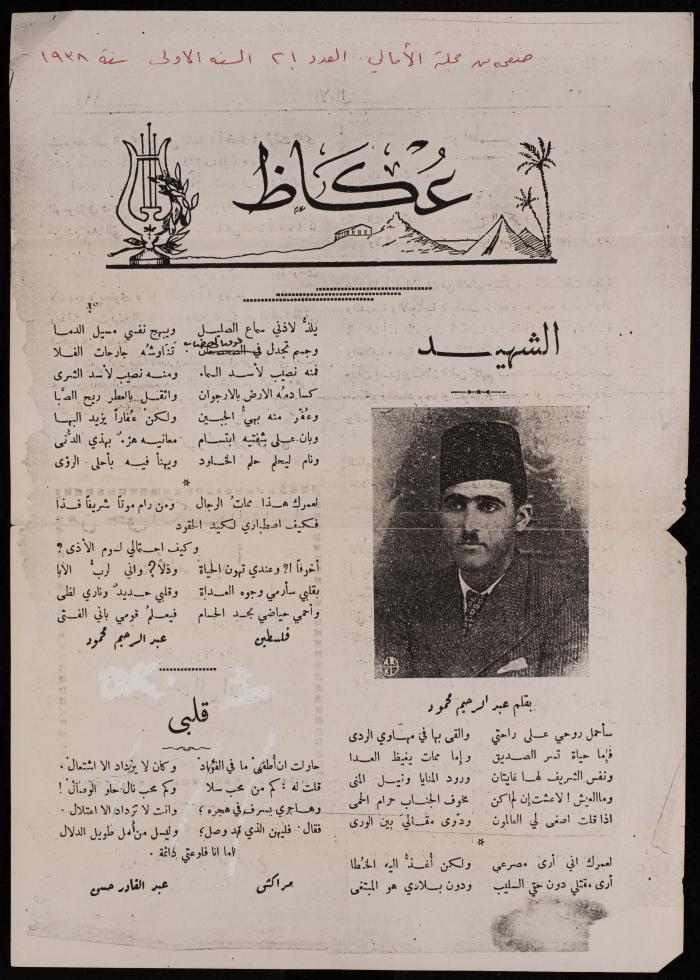 صفحة من مجلة الأمالي العدد ٢١ السنة الاولى سنة ١٩٣٨
عُكاظ
الشهيد
بقلم عبد الرحيم محمود
سأحمل روحي على راحتي والقى بها في مهاوي الردى
فإما حياة تسر الصديق وإما ممات يغيظ العدا
ونفس الشريف لها غايتان ورود المنايا ونيل المنى
وما العيش ! لا عشت إن لم اكن مخوف الجناب حرام الحمى
اذا قلت اصغى لي العالمون ودوى مقالي بين الورى
*
لعمرك اني أرى مصرعي ولكن أغذّ اليه الخطا
أرى مقتلي دون حقي السليب ودون بلادي هو المبتغى
يلذّ لاذني سماع الصليل ويبهج نفسي مسيل الدما
وجسم تجدل في تناوشه جارحات الفلا
فمنه نصيب لأسد السماء ومنه نصيب لأسد الشرى
كسا دمه الارض بالارجوان واثقل بالعطر ريح الصبا
وعفّر منه بهيّ الجبين ولكن عفاراً يزيد البها
وبان على شفتيه ابتسام معانيه هزء بهذي الدنى
ونام ليحلم حلم الخلود ويهنأ فيه بأحلى الرؤى
*
لعمرك هذا ممات الرجال ومن رام موتاً شريفاً فذا
فكيف اصطباري لكيد الحقود
وكيف احتمالي لسوم الأذى ؟
أخوفاً ؟! وعندي تهون الحياة وذلاً ؟ واني لرب الابا
بقلبي سأرمي وجوه العداة وقلبي حديد وناري لظى
وأحمي حياضي بحد الحسام فيعلم قومي باني الفتى
فلسطين عبد الرحيم محمود
قلبي
حاولت ان أطفئ ما في الفؤاد وكان لا يزداد الا اشتعال .
قلت له : كم من محب سلا وكم محب نال حلو الوصال !
وهاجري يسرف في هجره ؛ وانت لا تزداد الا اعتلال .
فقال . فليهن الذي قد وصل ؛ وليسل من أمل طويل الدلال
اما انا فلوعتي دائمة .
مراكش عبد القادر حسن